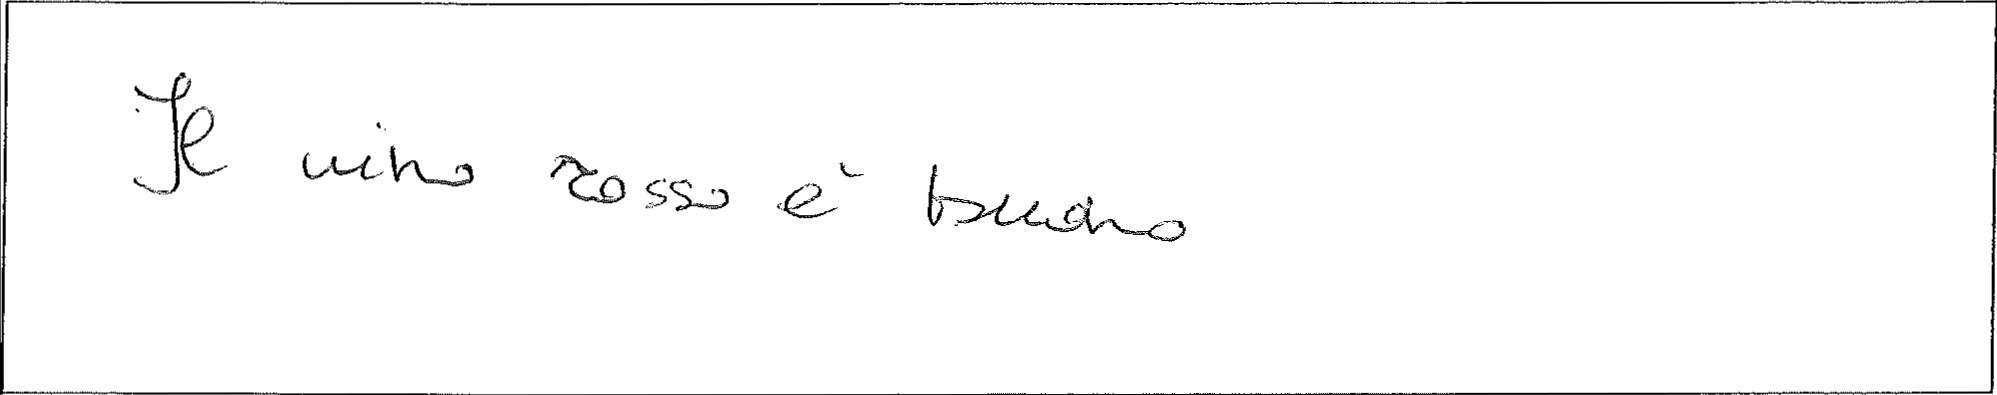 Il vino rosso è buono